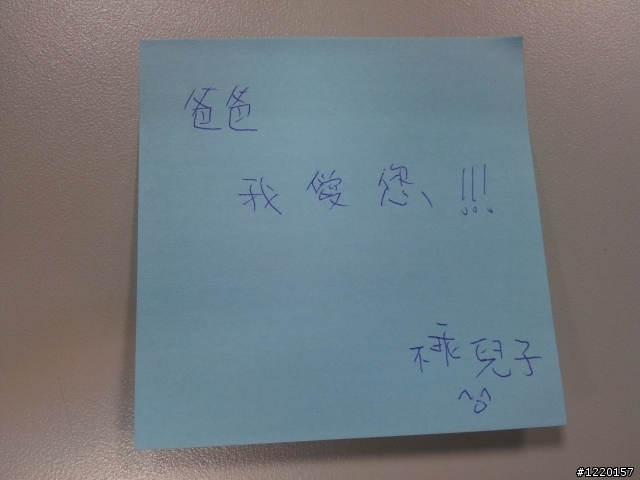 爸爸
我愛您!!!
不乖兒子
^o^
#1220157